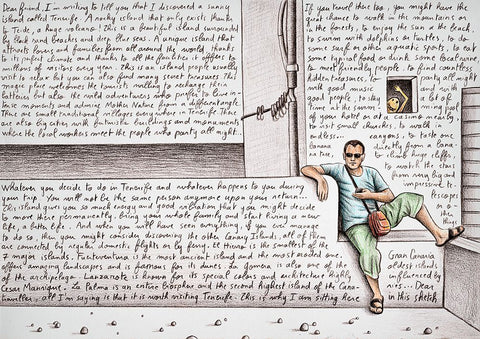 Dear friend, I am writing to tell you that I discovered a sunny
island called Tenerife. A rocky island that only exists thanks
to Teide, a huge volcano! This is a beautiful island surrounded
by black sand beaches and deep blue sea. A unique island that
attracts lovers and families from all around the world, thanks
to its perfect climate and thanks to all the facilities it offers to
millions of visitors every year. This is an island people usually
visit to relax but you can also find many secret treasures. This
magic place welcomes the tourists willing to recharge their
batteries but also the wild adventurers who prefer to live in-
tense moments and admire Mother Nature from a different angle.
There are small traditional villages everywhere in Tenerife. There
are also big cities with futuristic buildings and monuments
where the local workers meet the people who party all night...
If you travel there too, you might have the
great chance to walk in the mountains or
in the forests, to enjoy the sun at the beach,
to swim with dolphins & turtles, to do
some surf or other aquatic sports, to eat
some typical food or drink some local wine,
meet friendly people. To find countless
hidden treasures, to party all night
with good music and with
good people, to stay a lot of
time at the swim- ming pool
of your hotel or a casino nearby
to visit small churches, to walk in
endless... canyons, to taste a
banana directly from a bana-
na tree, to climb huge cliffs
to watch the stars
from very big and
impressive te-
lescops
or the-
se
Whatever you decide to do in Tenerife and whatever happens to you during
your trip. You will not be the same person anymore upon your return...
This island gives you so much energy and good vibration that you might decide
to move there permanently, bring your whole family and start living a new
life, a better life. And when you will have seen everything, if you ever manage
to do so, then you might consider discovering the other Canary Islands, all of them
are connected by regular domestic flights or by ferry. El Hierro is the smallest of the
7 major islands. Fuerteventura is the most ancient island and the most arid one.
offers amazing landscapes and is famous for its dunes. La Gomera is also one of the
of the archipelago. Lanzarote is known for its special colors and architecture highly
Cesar Manrique. La Palma is an entire Biosphere and the second highest island of the Cana-
traveller, all I'm saying is that it is worth visiting Tenerife. This is why I am sitting here
Gran Canaria
oldest islands
influenced by
ries... Dear
in this sketch